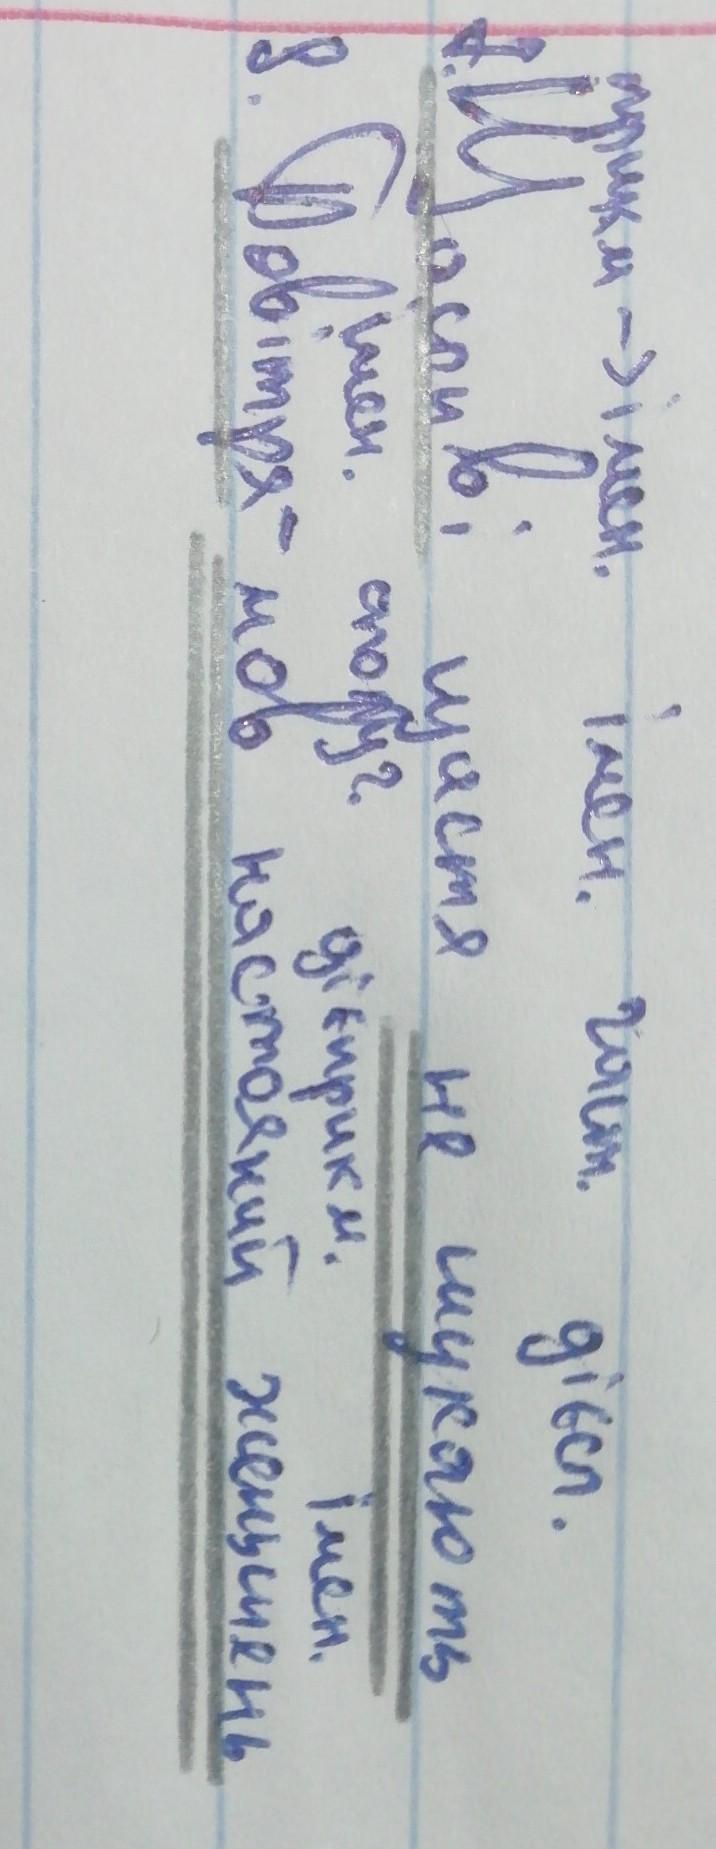 прикм → імен. імен. част. дієсл.
7. Щасливі щастя не шукають
імен. спол. дієприкм. імен.
8. Повітря - мов настояний женьшень